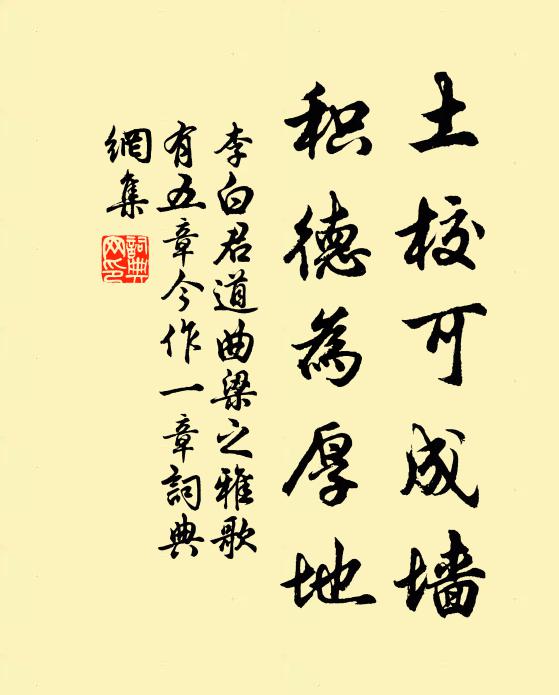 土校可成墙
积德为厚地
李白君道曲梁之雅歌
有五章今作一章词典
網集
詞典
网印